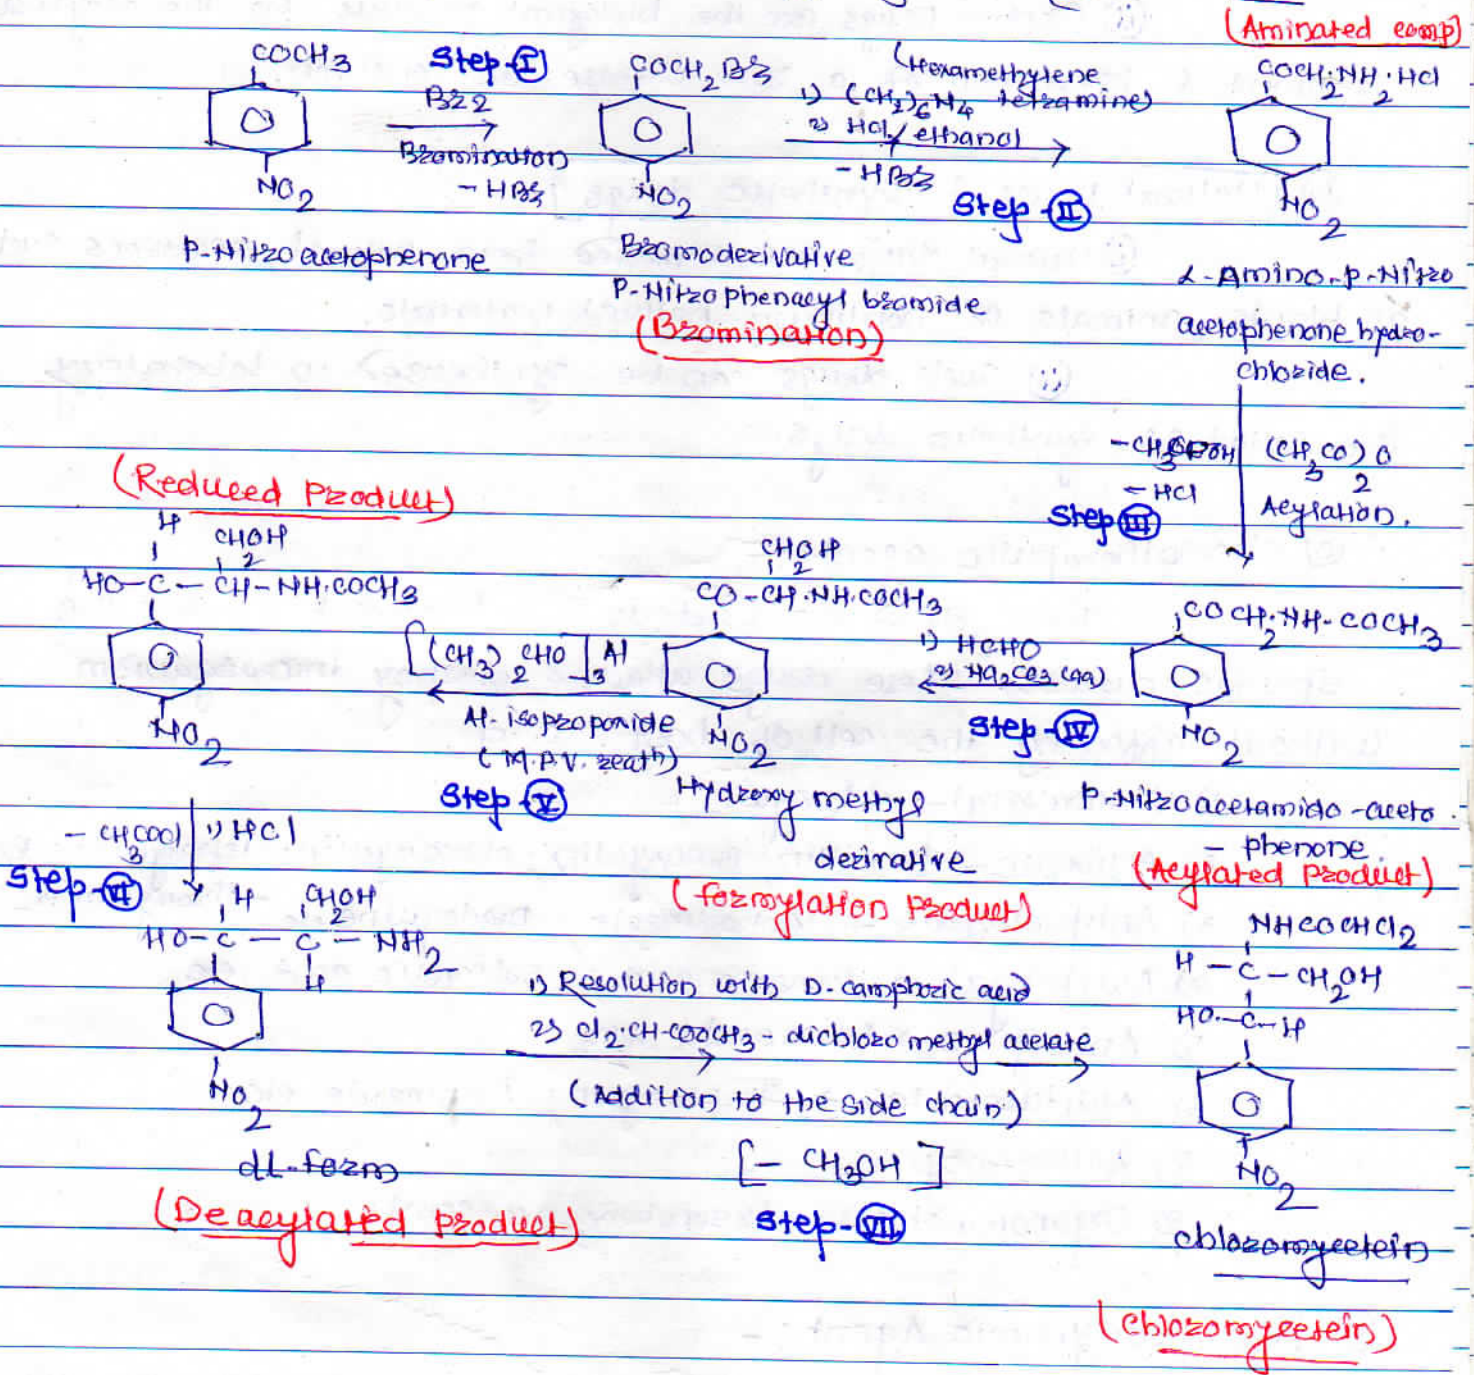 (Aminated comp)
COCH3
Step-I
Br2
Bromination
- HBr
NO2
P-Nitroacetophenone
COCH2Br
NO2
Bromoderivative
P-Nitrophenacyl bromide
(Bromination)
(Hexamethylene
1) (CH2)6N4 tetramine)
2) HCl / ethanol
- HBr
Step-II
COCH2·NH2·HCl
NO2
α-Amino-p-Nitro
acetophenone hydro-
chloride.
-CH3COOH
- HCl
Step III
(CH3CO)2O
Acylation.
COCH2·NH-COCH3
NO2
P-Nitroacetamido-aceto
- phenone.
(Acylated Product)
1) HCHO
2) Na2CO3(aq)
Step-IV
CH2OH
CO-CH·NH·COCH3
NO2
Hydroxy methyl
derivative
(formylation Product)
[(CH3)2CHO]3Al
Al-isopropoxide
(M.P.V. reatn)
Step-V
(Reduced Product)
H
CH2OH
HO-C-CH-NH·COCH3
NO2
- CH3COCl
1) HCl
Step-VI
H
CH2OH
HO-C-C-NH2
H
NO2
dL-form
(Deacylated Product)
1) Resolution with D-camphoric acid
2) Cl2·CH-COOCH3 - dichloro methyl acetate
(Addition to the side chain)
[- CH3OH]
Step-VII
NHCOCHCl2
H-C-CH2OH
HO-C-H
NO2
chloromycetein
(chloromycetein)